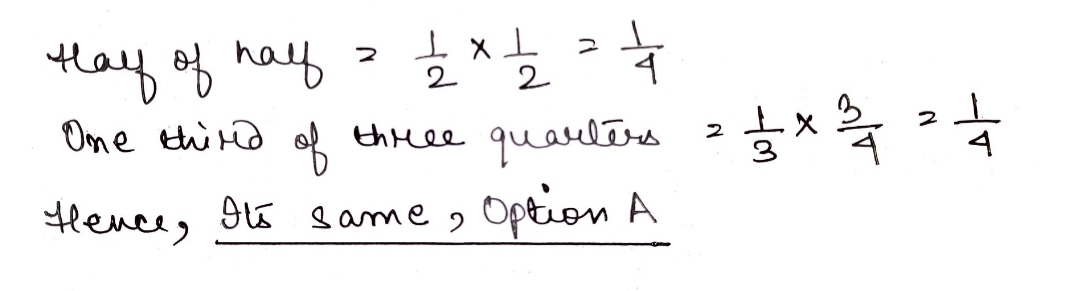 Half of half = 1/2 × 1/2 = 1/4
One third of three quarters = 1/3 × 3/4 = 1/4
Hence, Its same, Option A